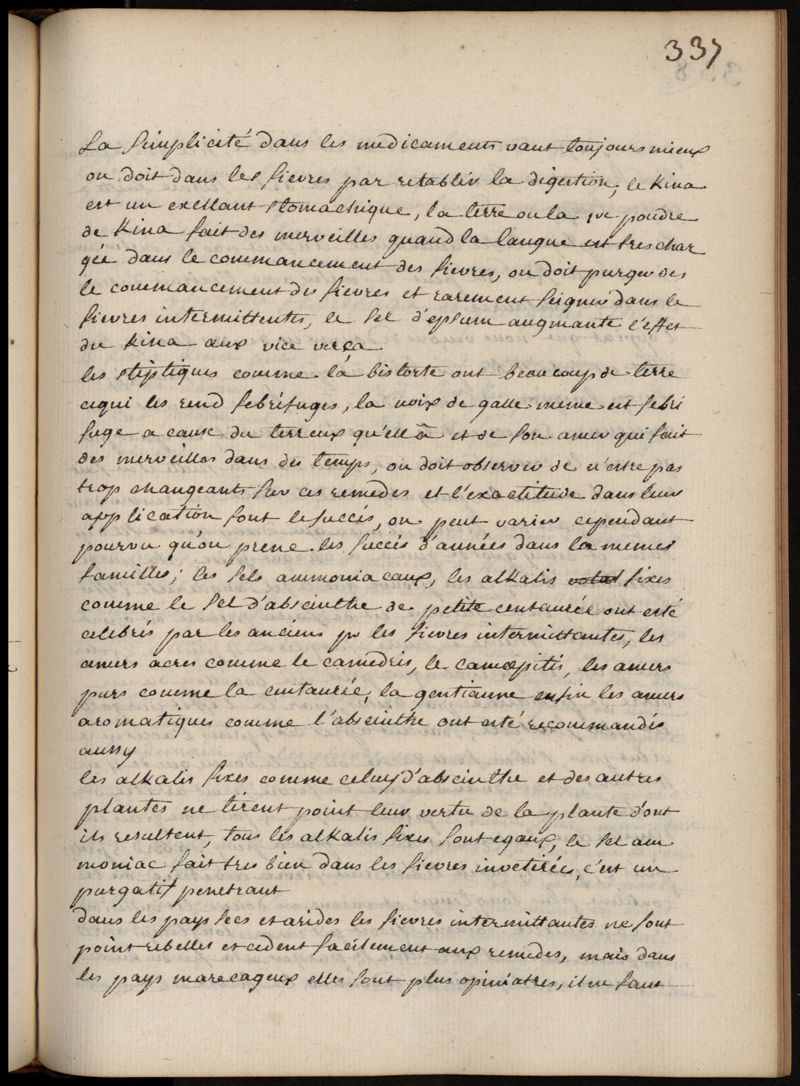 337
La simplicité dans les medicaments vaut toujours mieux
on doit dans les fievres par retablir la digestion, le Kina
est un exellant stomachique, la terre ou la pe poudre
de Kina fait des merveilles quand la langue est tres char
gée dans le commancement des fievres, on doit purger des
le commancement des fievres et rarement seigner dans le
fievres intermittentes, le sel d'epsum augmante l'effet
du Kina aux vice verça
les stiptiques comme la bistorte ont beaucoup de terre
cequi les rend febrifuges, la noix de galle meme est febri
fuge a cause du terreux qu'ell à et de son amer qui fait
des merveilles dans des temps, on doit observer de n'estre pas
trop changeants sur ces remedes et l'exactitude dans leur
application font le succés, on peut varier cependant
pourvu qu'on prene les succés d'années dans la memes
familles; les sels ammoniacaux, les alkalis fixes
comme le sel d'absinthe de petite centaurée ont esté
celebrés par les anciens pr les fievres intermittantes, les
amers acres comme le camedris, le camæpitis, les amers
purs comme la centaurée, la gentianne enfin les amers
aromatiques comme l'abscinthe ont esté recommandés
aussy
les alkalis fixes comme celuy d'abscinthe et des autres
plantes ne tirent point leur vertu de la plante d'ont
ils resultent, tous les alkalis fixes sont egaux, le sel am
moniac fait tres bien dans les fievres invetirées, c'est un
purgatif penetrant
dans les pays secs et arides les fievres intermittantes ne sont
point rebelles et cedent facilement aux remedes, mais dans
les pays marecageux elles sont plus opiniatres, il ne faut